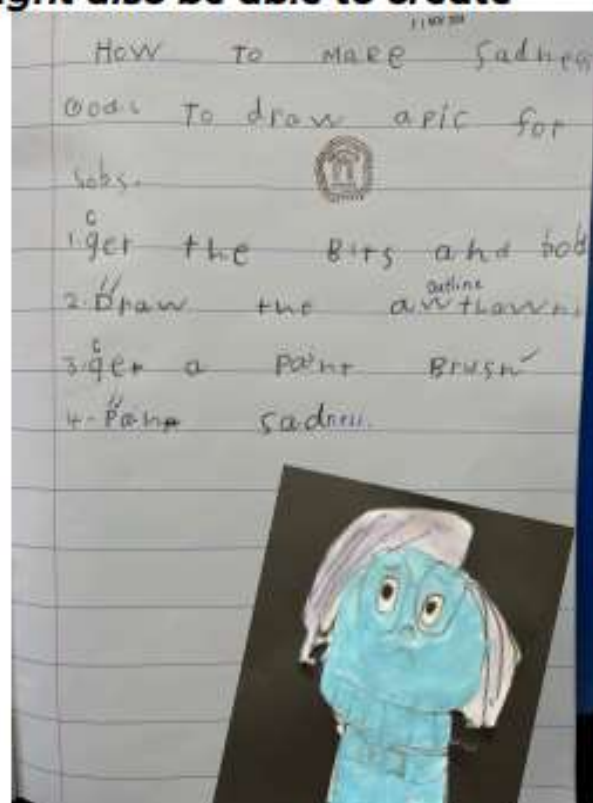 ght also be able to create
How To Make Sadness
Goal To draw a pic for
1. get the Bits and bod
2. Draw the awtlawn
outline
3. get a Paint Brush
4. Paint sadness.